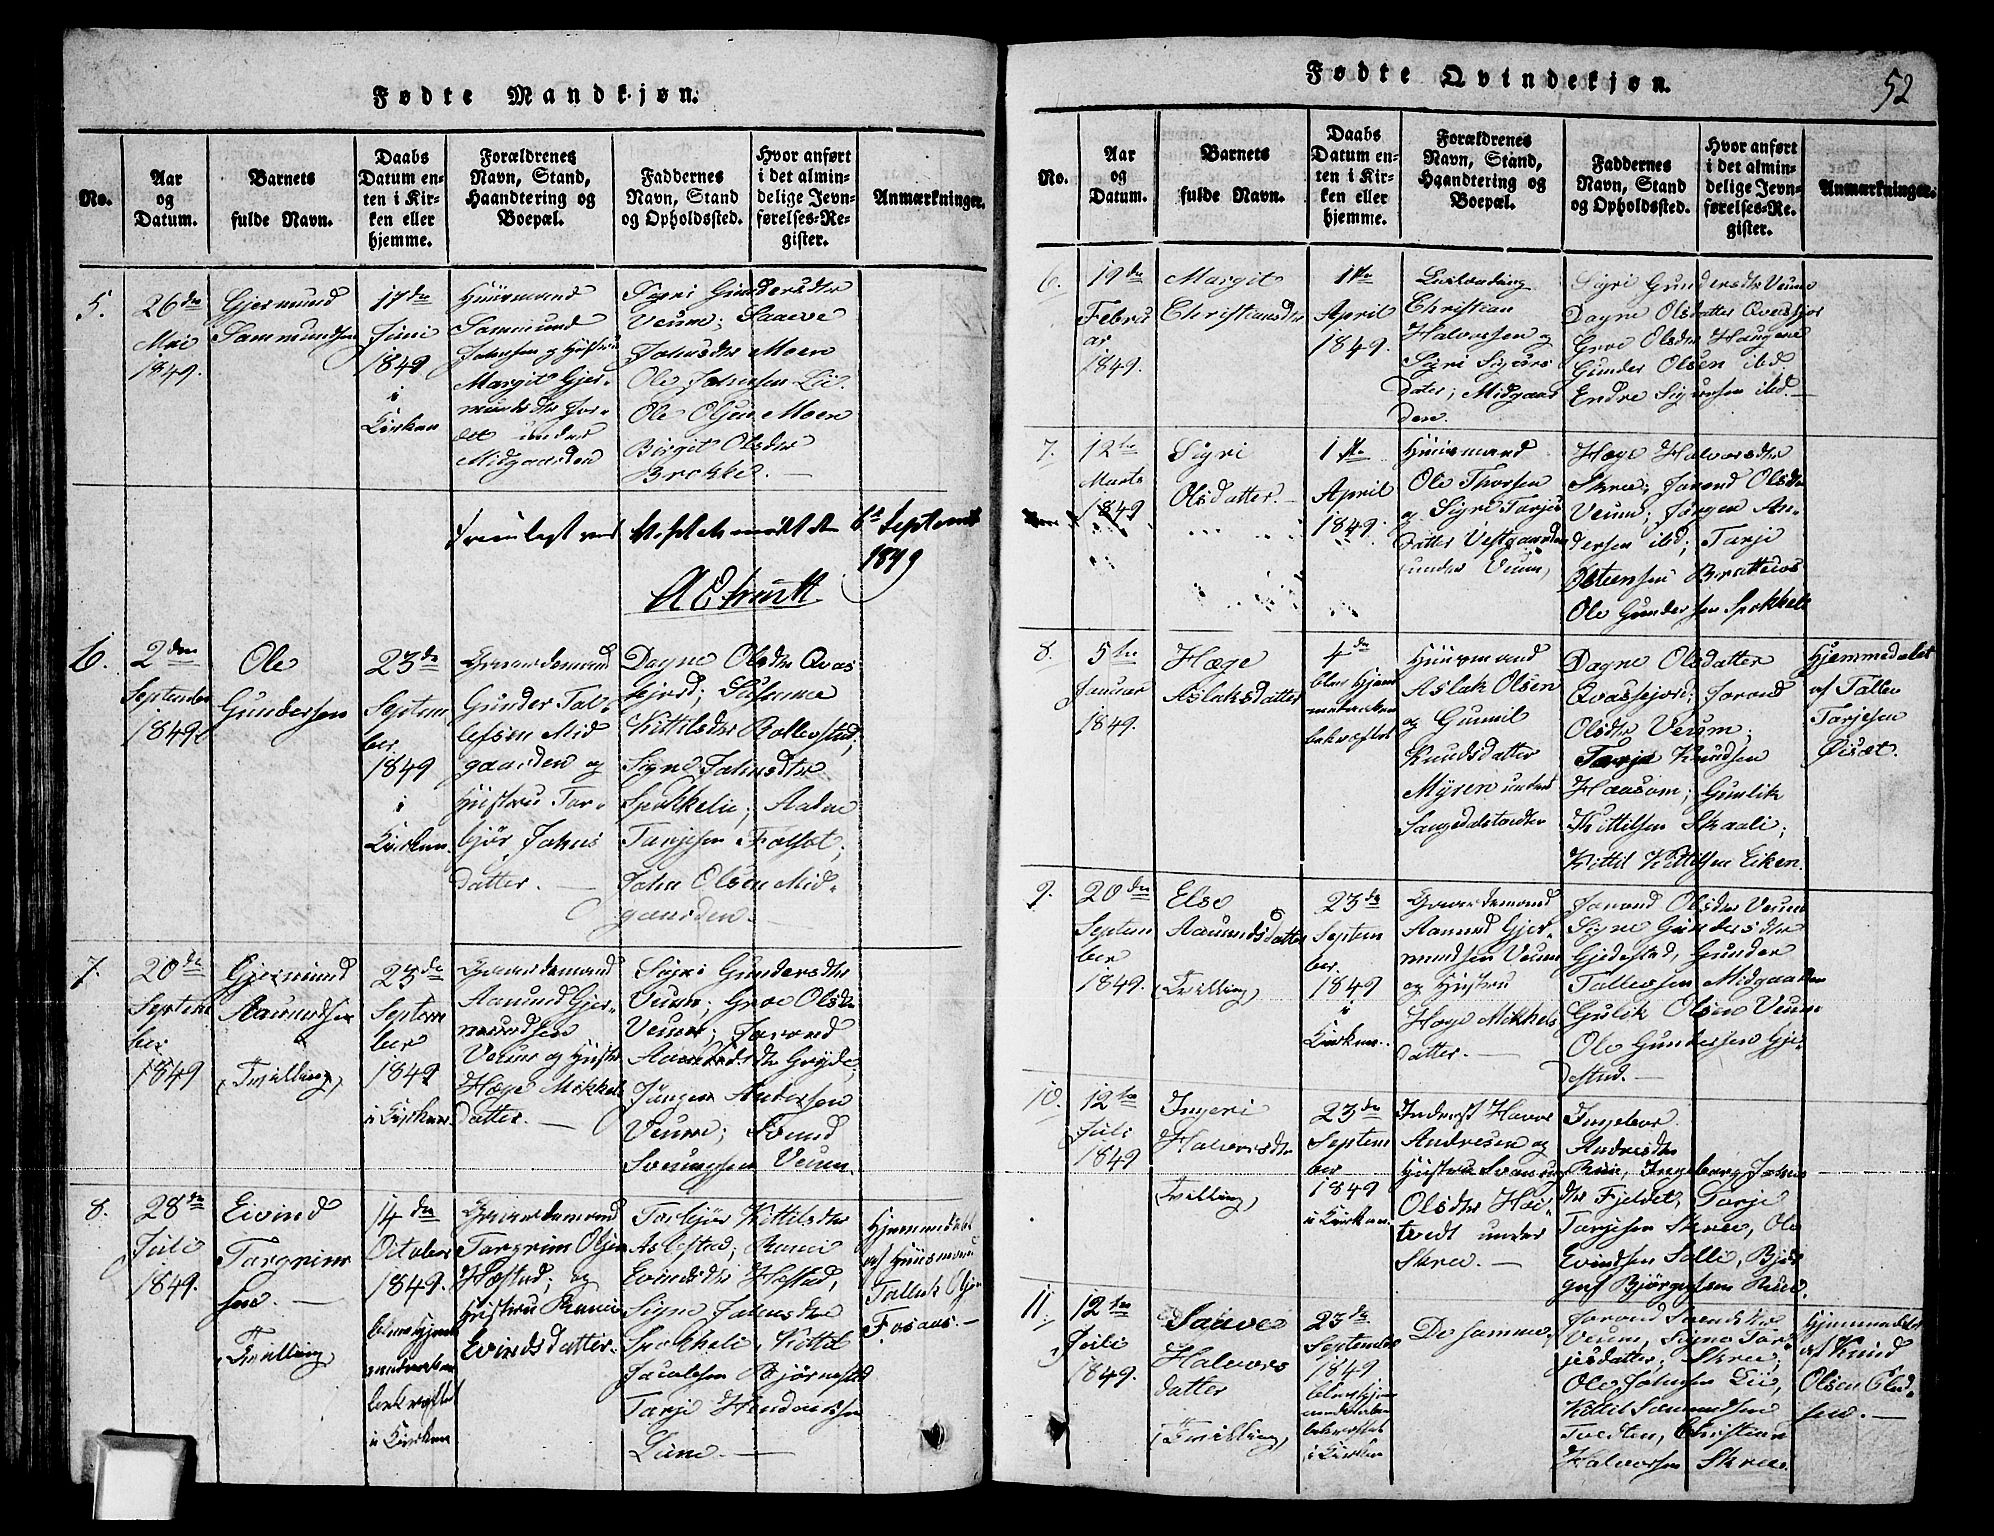 Fødte Mandkjøn.
No.
Aar
og
Datum.
Barnets
fulde Navn.
Daabs
Datum en-
ten i Kir-
ken eller
hjemme.
Forældrenes
Navn, Stand,
Haandtering og
Boepæl.
Faddernes
Navn, Stand
og Opholdssted.
Hvor anført
i det almin-
delige Jevn-
førelses-Re-
gister.
Anmærkninger.
5.
26de
Mai
1849.
Gjermund
Sammundsen
17de
Juni
1849
i
Kirken
Huusmand
Sammund
Johnsen og Hustru
Margit Gjer-
mundsdtr
under
Midgaarden
Sigri Gundersdtr
Veum; Saave
Johnsdtr Moen
Ole Johnsen Lii.
Ole Olsen Moen
Birgit Olsdtr
Brokke.
Fremlagt ved
6te Septemb
1849
6.
2den
September
1849.
Ole
Gundersen
23de
Septem
ber
1849
i
Kirken.
Gaardemand
Gunder Tal-
lefsen Mid
gaarden og
Hustru Tor-
bjør Johns
datter.
Dagne Olsdtr Qvas
fjord; Susanne
Kittilsdtr Bollevstad;
Signe Johnsdtr
Spokkelie; Aadne
Tarjesen
John Olsen Mid-
gaarden.
7.
20de
Septem
ber
1849
Gjermund
Aamundsen
(Tvilling)
23de
Septem
ber
1849
i Kirken.
Gaardemand
Aamund Gjer-
mundsen
Veum og Hustru
Hæge Mikkels
datter.
Sigri Gundersdtr
Veum; Groe Olsdtr
Veum; Jorond
Aamundsdtr Gryde;
Jørgen Andersen
Veum; Svend
Svenungsen Veum.
8.
28de
Juli
1849.
Eivind
Targrims
sen.
(Tvilling)
14de
October
1849.
blev hjem
medaaben
bekræftet
i Kirken
Gaardemand
Targrim Olsen
Hæstad; og
Hustru Ranei
Evindsdatter.
Torbjør Kittilsdtr
Aslestad; Ranei
Evindsdtr Hæstad,
Signe Johnsdtr
Spokkeli, Kittil
Jacobsen Bjørnestad
Tarje
Hjemmedøbt
af Huusmand
Fosaas.
Fødte Qvindekjøn.
52
No.
Aar
og
Datum.
Barnets
fulde Navn.
Daabs
Datum en-
ten i Kir-
ken eller
hjemme.
Forældrenes
Navn, Stand,
Haandtering og
Boepæl.
Faddernes
Navn, Stand
og Opholdssted.
Hvor anført
i det almin-
delige Jevn-
førelses-Re-
gister.
Anmærkninger.
6.
19de
Febru
ar
1849.
Margit
Christiansdtr
1ste
April
1849.
Christian
Halvorsen og
Sigri Sigurs
dater; Midgaar
den.
Sigri Gundersdtr Veum
Dagne Olsdatter Qvasfjor
Groe Olsdtr Haugene
Gunder Olsen ibd.
Endre Sigursen ibd.
7.
12te
Marts
1849.
Sigri
Olsdatter.
1ste
April
1849.
Huusmand
Ole Thorsen
og Sigri Tarjes
datter Vestgaarden
(under Veum)
Hæge Halvorsdtr
Skree; Jorond Olsdtr
Veum; Jørgen An-
dersen ibd; Tarje
Østensen Bratteos
Ole Gundersen Spokkeli
8.
5te
Januar
1849.
Hæge
Aslaksdatter
4de
blev hjem
medaaben
bekræftet
Huusmand
Aslak Olsen
og Gunvil
Knudsdatter
Myren under
Dagne Olsdatter
Qvassfjord; Jorond
Olsdtr Veum;
Tarje Knudsen
Haasom; Gunlik
Kittilsen Skaali;
Kittil Kittilsen Eiken.
Hjemmedøbt
af Tallev
Tarjesen
Øisæt.
9.
20de
Septem
ber
1849.
Else
Aamundsdatter
(Tvilling)
23de
Septem
ber.
1849
i
Kirken.
Gaardemand
Aamund Gjer-
mundsen Veum
og Hustru
Hæge Mikkels
datter.
Jorond Olsdtr Veum
Signe Gundersdtr
Gjedestad, Gunder
Tallevsen Midgaarden
Gulik Olsen Veum
Ole Gundersen Gje-
destad.
10.
12te
Juli
1849
Ingeri
Halvorsdtr
(Tvilling)
23de
Septem
ber
1849
i Kirken.
Inderst Havor
Andresen og
Hustru Svanaug
Olsdtr Hæi-
tvedt under
Skree.
Ingebor
Andresdtr
Rue, Ingeborg Johns
dtr Fjeldet, Tarje
Tarjesen Skree, Ole
Evindsen Solli, Bjør
gulf Bjørgulfsen Rue.
11.
12te
Juli
1849.
Saave
Halvors
datter
(Tvilling)
23de
September
1849
blev hjem
medaaben
bekræftet
i Kirken
De samme.
Jorond Svendsdtr
Veum, Signe Tar-
jesdatter; Skree;
Ole Johnsen Lii,
Kittil Sammundsen
Tvedten, Christian
Halvorsen Skree.
Hjemmedøbt
af Knud
Olsen